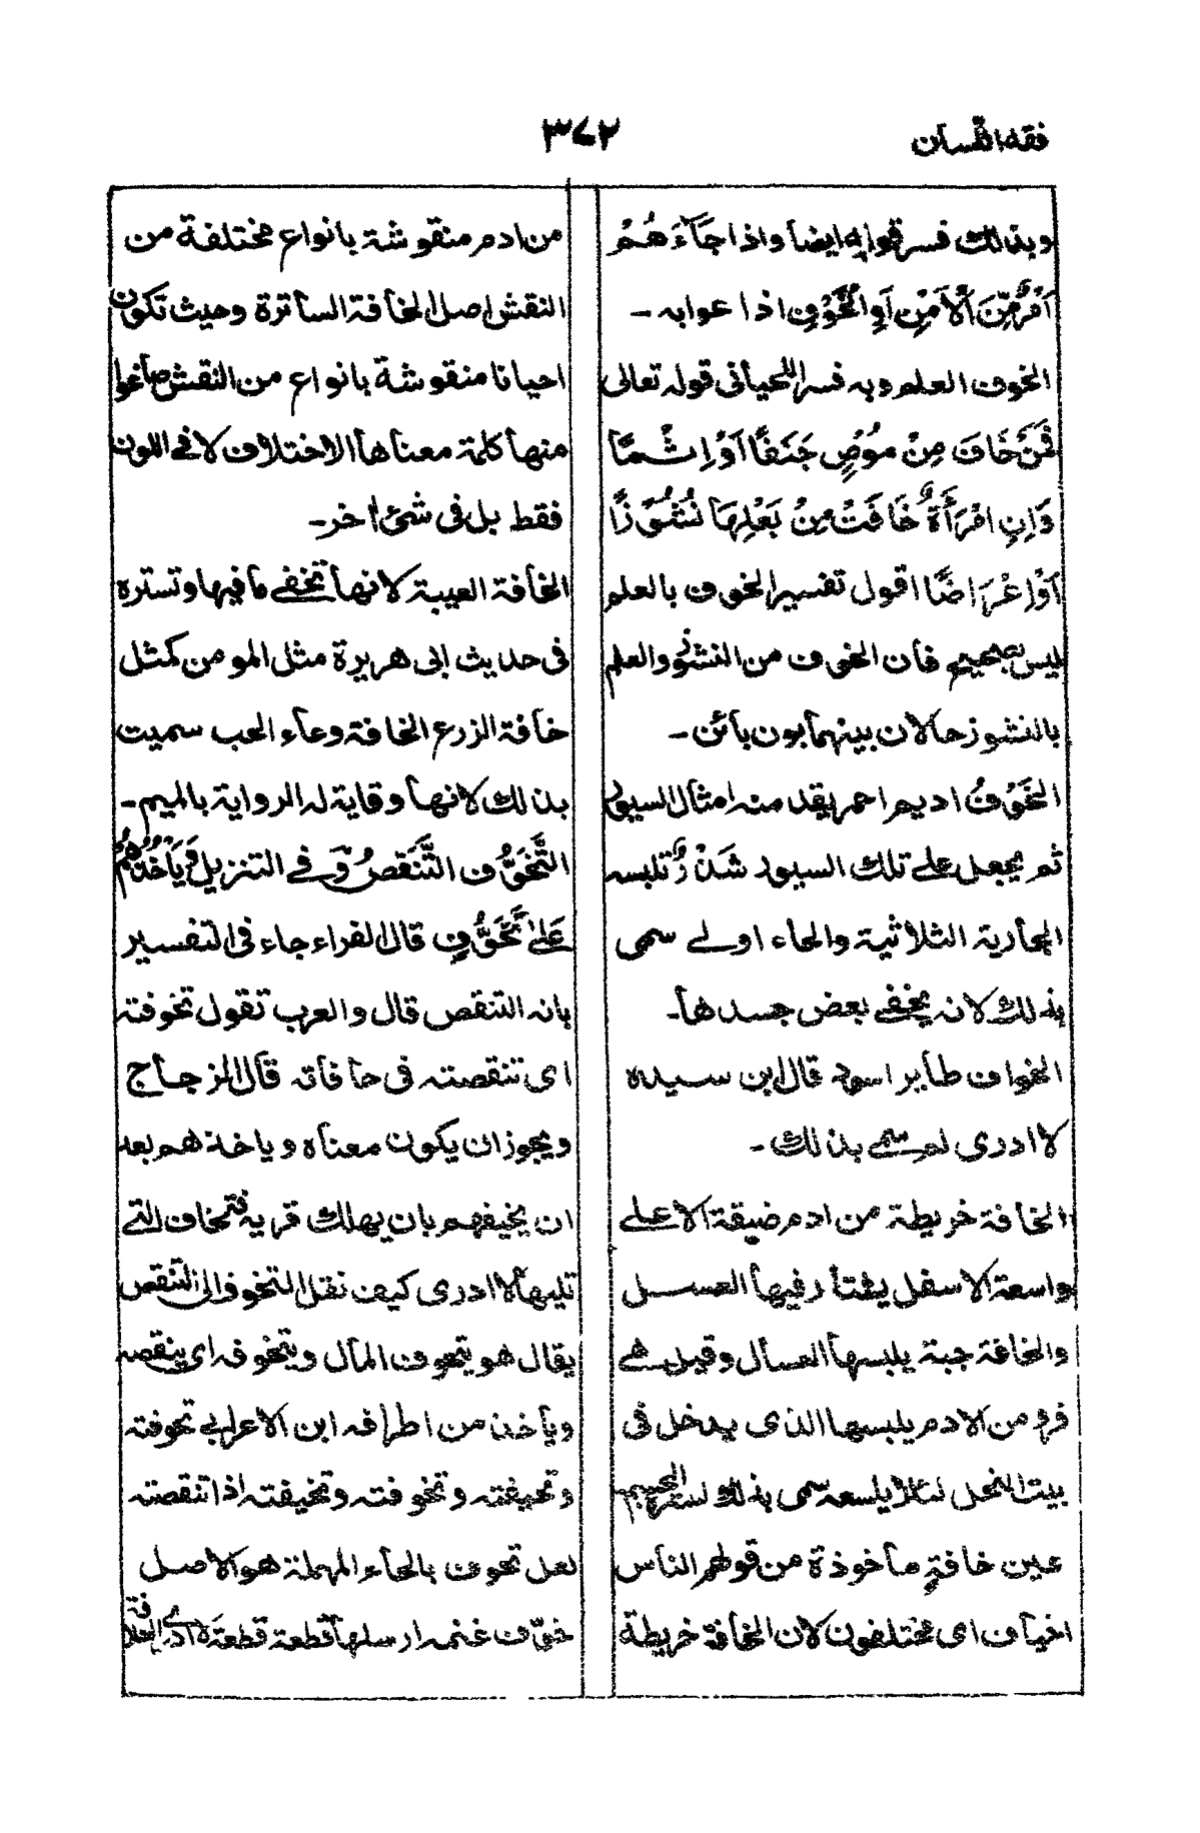 فقه اللسان
٣٧٢
وبذلك فسر قوله ايضا واذا جَآءَهُمْ
اَمْرٌ مِّنَ الْاَمْنِ اَوِ الْخَوْفِ اذا عوابه -
الخوف العلم وبه فسر اللحياني قوله تعالى
فَمَنْ خَافَ مِنْ مُوْصٍ جَنَفًا اَوْ اِثْمًا
وَاِنِ امْرَأَةٌ خَافَتْ مِنْ بَعْلِهَا نُشُوْزًا
اَوْ اِعْرَاضًا اقول تفسير الخوف بالعلم
ليس بصحيح فان الخوف من النشوز والعلم
بالنشوز حالان بينهما بون بائن -
الخَوْفُ اديم احمر يقد منه امثال السيور
ثم يجعل على تلك السيور شَذْرٌ تلبسه
الجارية الثلاثية والحاء اولى سمى
بذلك لانه يخفى بعض جسدها-
الخواف طاير اسود قال ابن سيده
لا ادرى لم سمى بذلك -
الخافة خريطة من ادم ضيقة الاعلى
واسعة الاسفل يشتار فيها العسل
والخافة جبة يلبسها العسال وقيل هى
فرو من الادم يلبسها الذى يدخل فى
بيت النحل لئلا يلسعه سمى بذلك لستره الجسم
عين خافةٍ ماخوذة من قولهم الناس
اخياف اى مختلفون لان الخافة خريطة
من ادم منقوشة بانواع مختلفة من
النقش اصل الخافة الساترة وحيث تكون
احيانا منقوشة بانواع من النقش صاغوا
منها كلمة معناها الاختلاف لا فى اللون
فقط بل فى شئ اخر-
الخافة العيبة لانها تخفى ما فيها وتستره
فى حديث ابى هريرة مثل المومن كمثل
خافة الزرع الخافة وعاء الحب سميت
بذلك لانها وقاية له الرواية بالميم-
التَّخَوُّف التَّنَقُّصُ وَفى التنزيل اَوْ يَاْخُذَهُمْ
عَلٰى تَخَوُّفٍ قال الفراء جاء فى التفسير
بانه التنقص قال والعرب تقول تخوفته
اى تنقصته فى حافاته قال الزجاج
ويجوز ان يكون معناه وياخذهم بعد
ان يخيفهم بان يهلك قرية فتخاف التى
تليها لا ادرى كيف نقل التخوف الى التنقص
يقال هو يتخوف المال ويتخوفه اى ينقصه
وياخذ من اطرافه ابن الاعرابى تحوفته
وتحيفته وتخوفته وتخيفته اذا تنقصته
لعل تحوف بالحاء المهملة هو الاصل
خوّف غنمه ارسلها قطعة قطعة لا ادرى